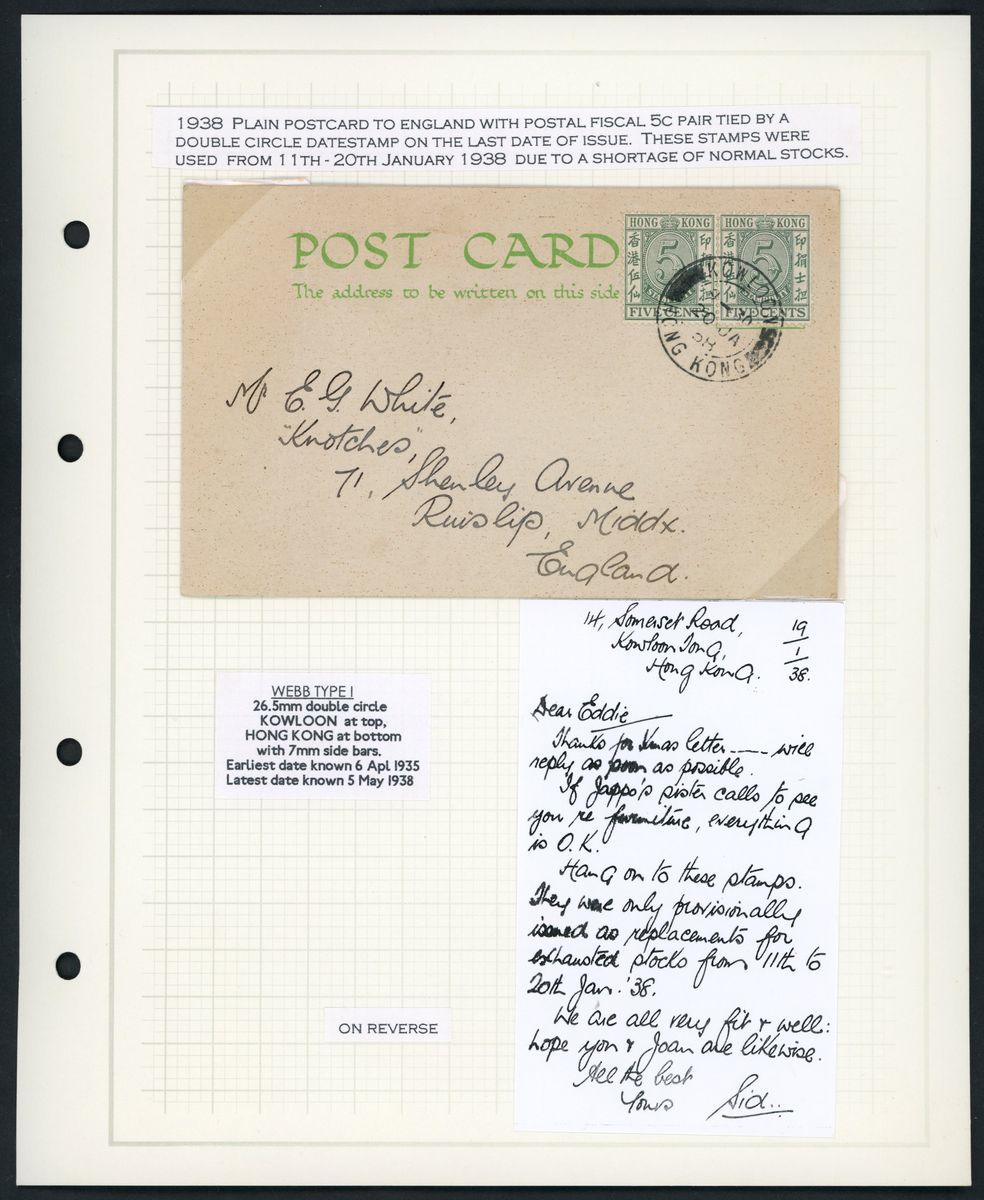 1938 PLAIN POSTCARD TO ENGLAND WITH POSTAL FISCAL 5C PAIR TIED BY A
DOUBLE CIRCLE DATESTAMP ON THE LAST DATE OF ISSUE. THESE STAMPS WERE
USED FROM 11TH - 20TH JANUARY 1938 DUE TO A SHORTAGE OF NORMAL STOCKS.
POST CARD
The address to be written on this side
HONG KONG
香港伍仙
印
5
FIVE CENTS
HONG KONG
香
仙
印捐士担
5
FIVE CENTS
KOWLOON
20 JA
38
HONG KONG
Mr E. G. White,
"Knotches",
71, Shenley Avenue
Ruislip, Middx.
England.
14, Somerset Road,
Kowloon Tong,
Hong Kong.
19
1
38.
Dear Eddie
Thanks for Xmas letter ---- will
reply as soon as possible.
If Jappo's sister calls to see
you re furniture, everything
is O.K.
Hang on to these stamps.
They were only provisionally
issued as replacements for
exhausted stocks from 11th to
20th Jan. '38.
We are all very fit & well:
hope you & Joan are likewise.
All the best
Yours Sid..
WEBB TYPE I
26.5mm double circle
KOWLOON at top,
HONG KONG at bottom
with 7mm side bars.
Earliest date known 6 Apl 1935
Latest date known 5 May 1938
ON REVERSE